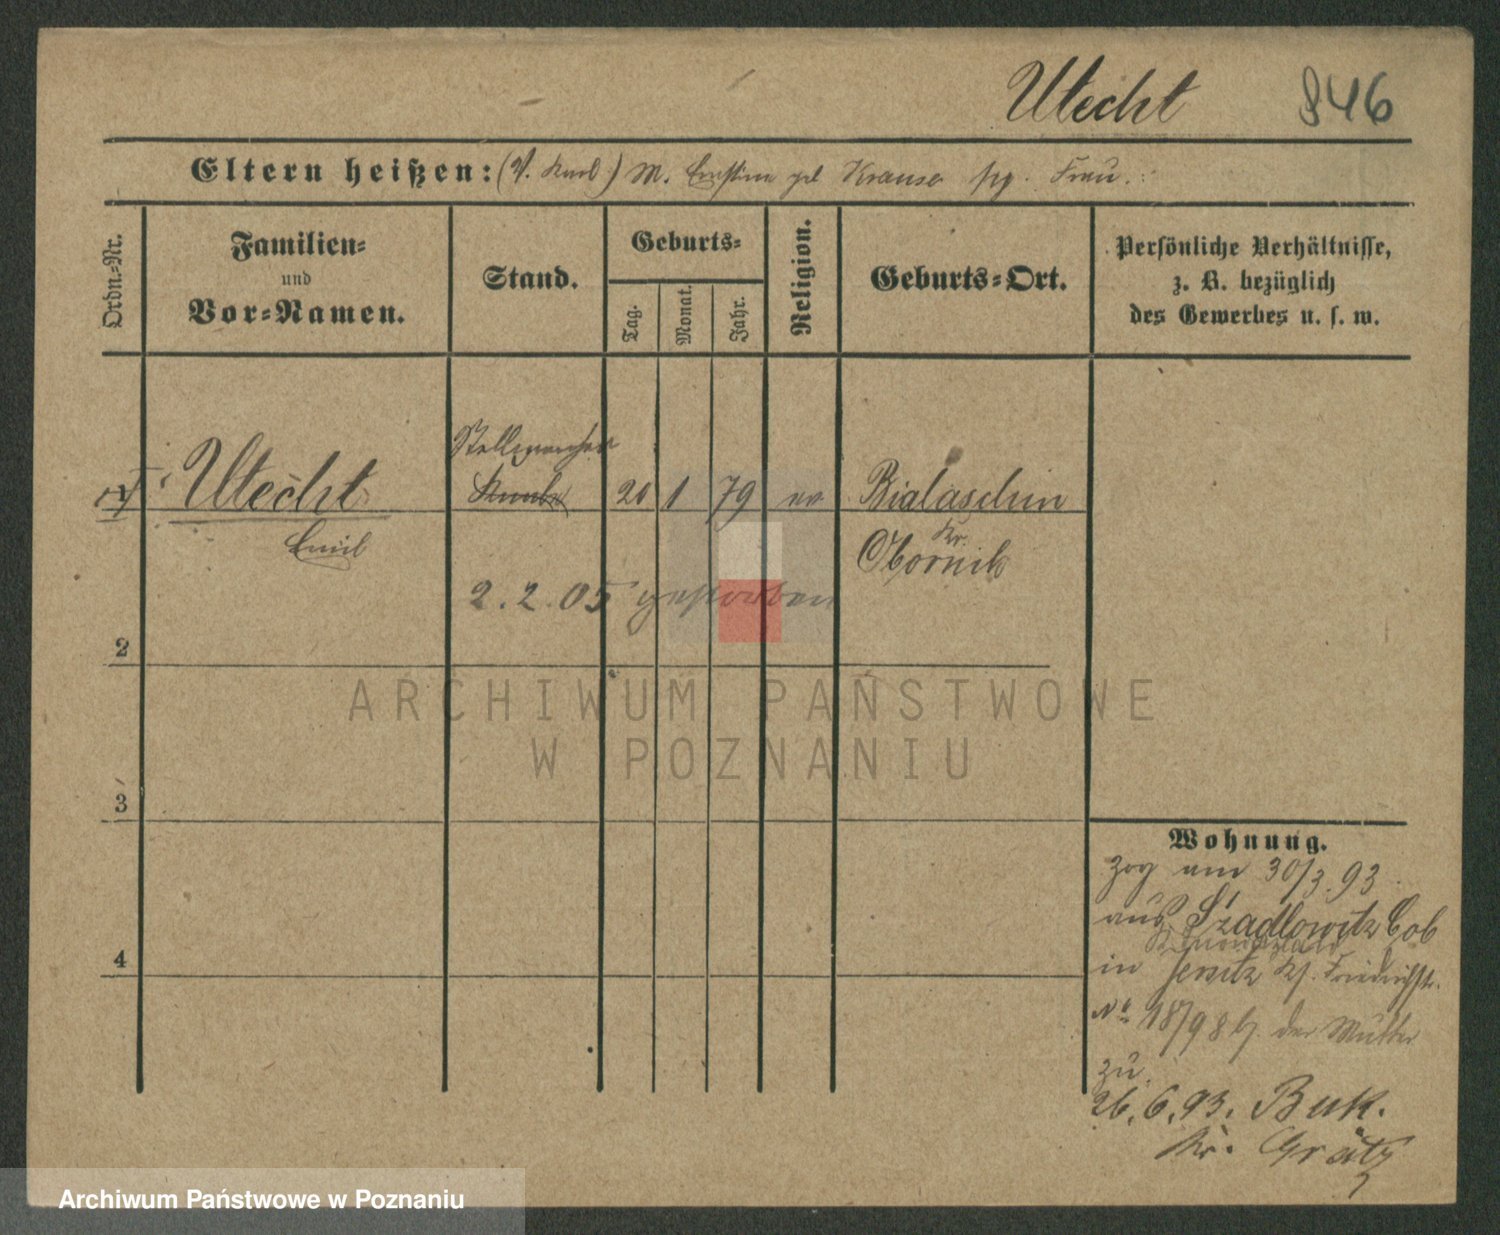 Utecht 846
Eltern heißen: (V. Karl) M. Ernstine geb Krause Frau.
Ordn.-Nr.
Familien-
und
Vor-Namen.
Stand.
Geburts-
Tag.
Monat.
Jahr.
Religion.
Geburts-Ort.
Persönliche Verhältnisse,
z. B. bezüglich
des Gewerbes u. s. w.
Stellmacher
1 Utecht Knabe 20 1 79 ev Bialaschin
Emil Kr.
Obornik
2.2.05 gestorben
2
3
4
Wohnung.
zog am 30/3.93
aus Szadlowitz
Kr Inowrazlaw
in Jersitz Friedrichstr.
No 18/98 der Mutter
zu.
26.6.93. Buk.
Kr. Grätz
ARCHIWUM PAŃSTWOWE
W POZNANIU
Archiwum Państwowe w Poznaniu